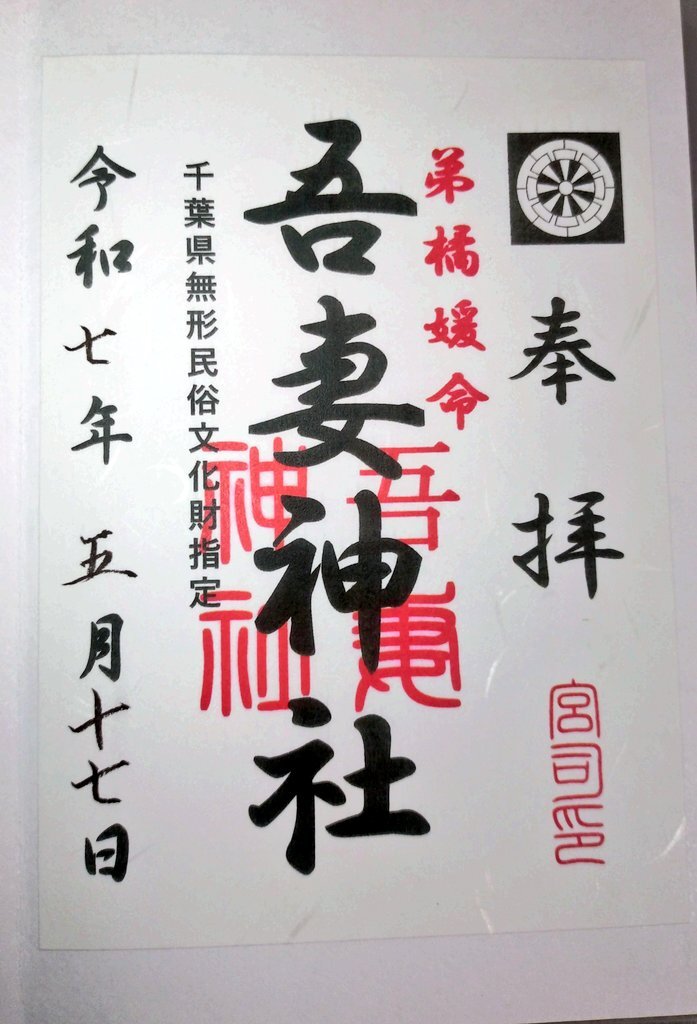 奉拝
宮司印
弟橘媛命
吾妻神社
吾妻
神社
千葉県無形民俗文化財指定
令和七年 五月十七日